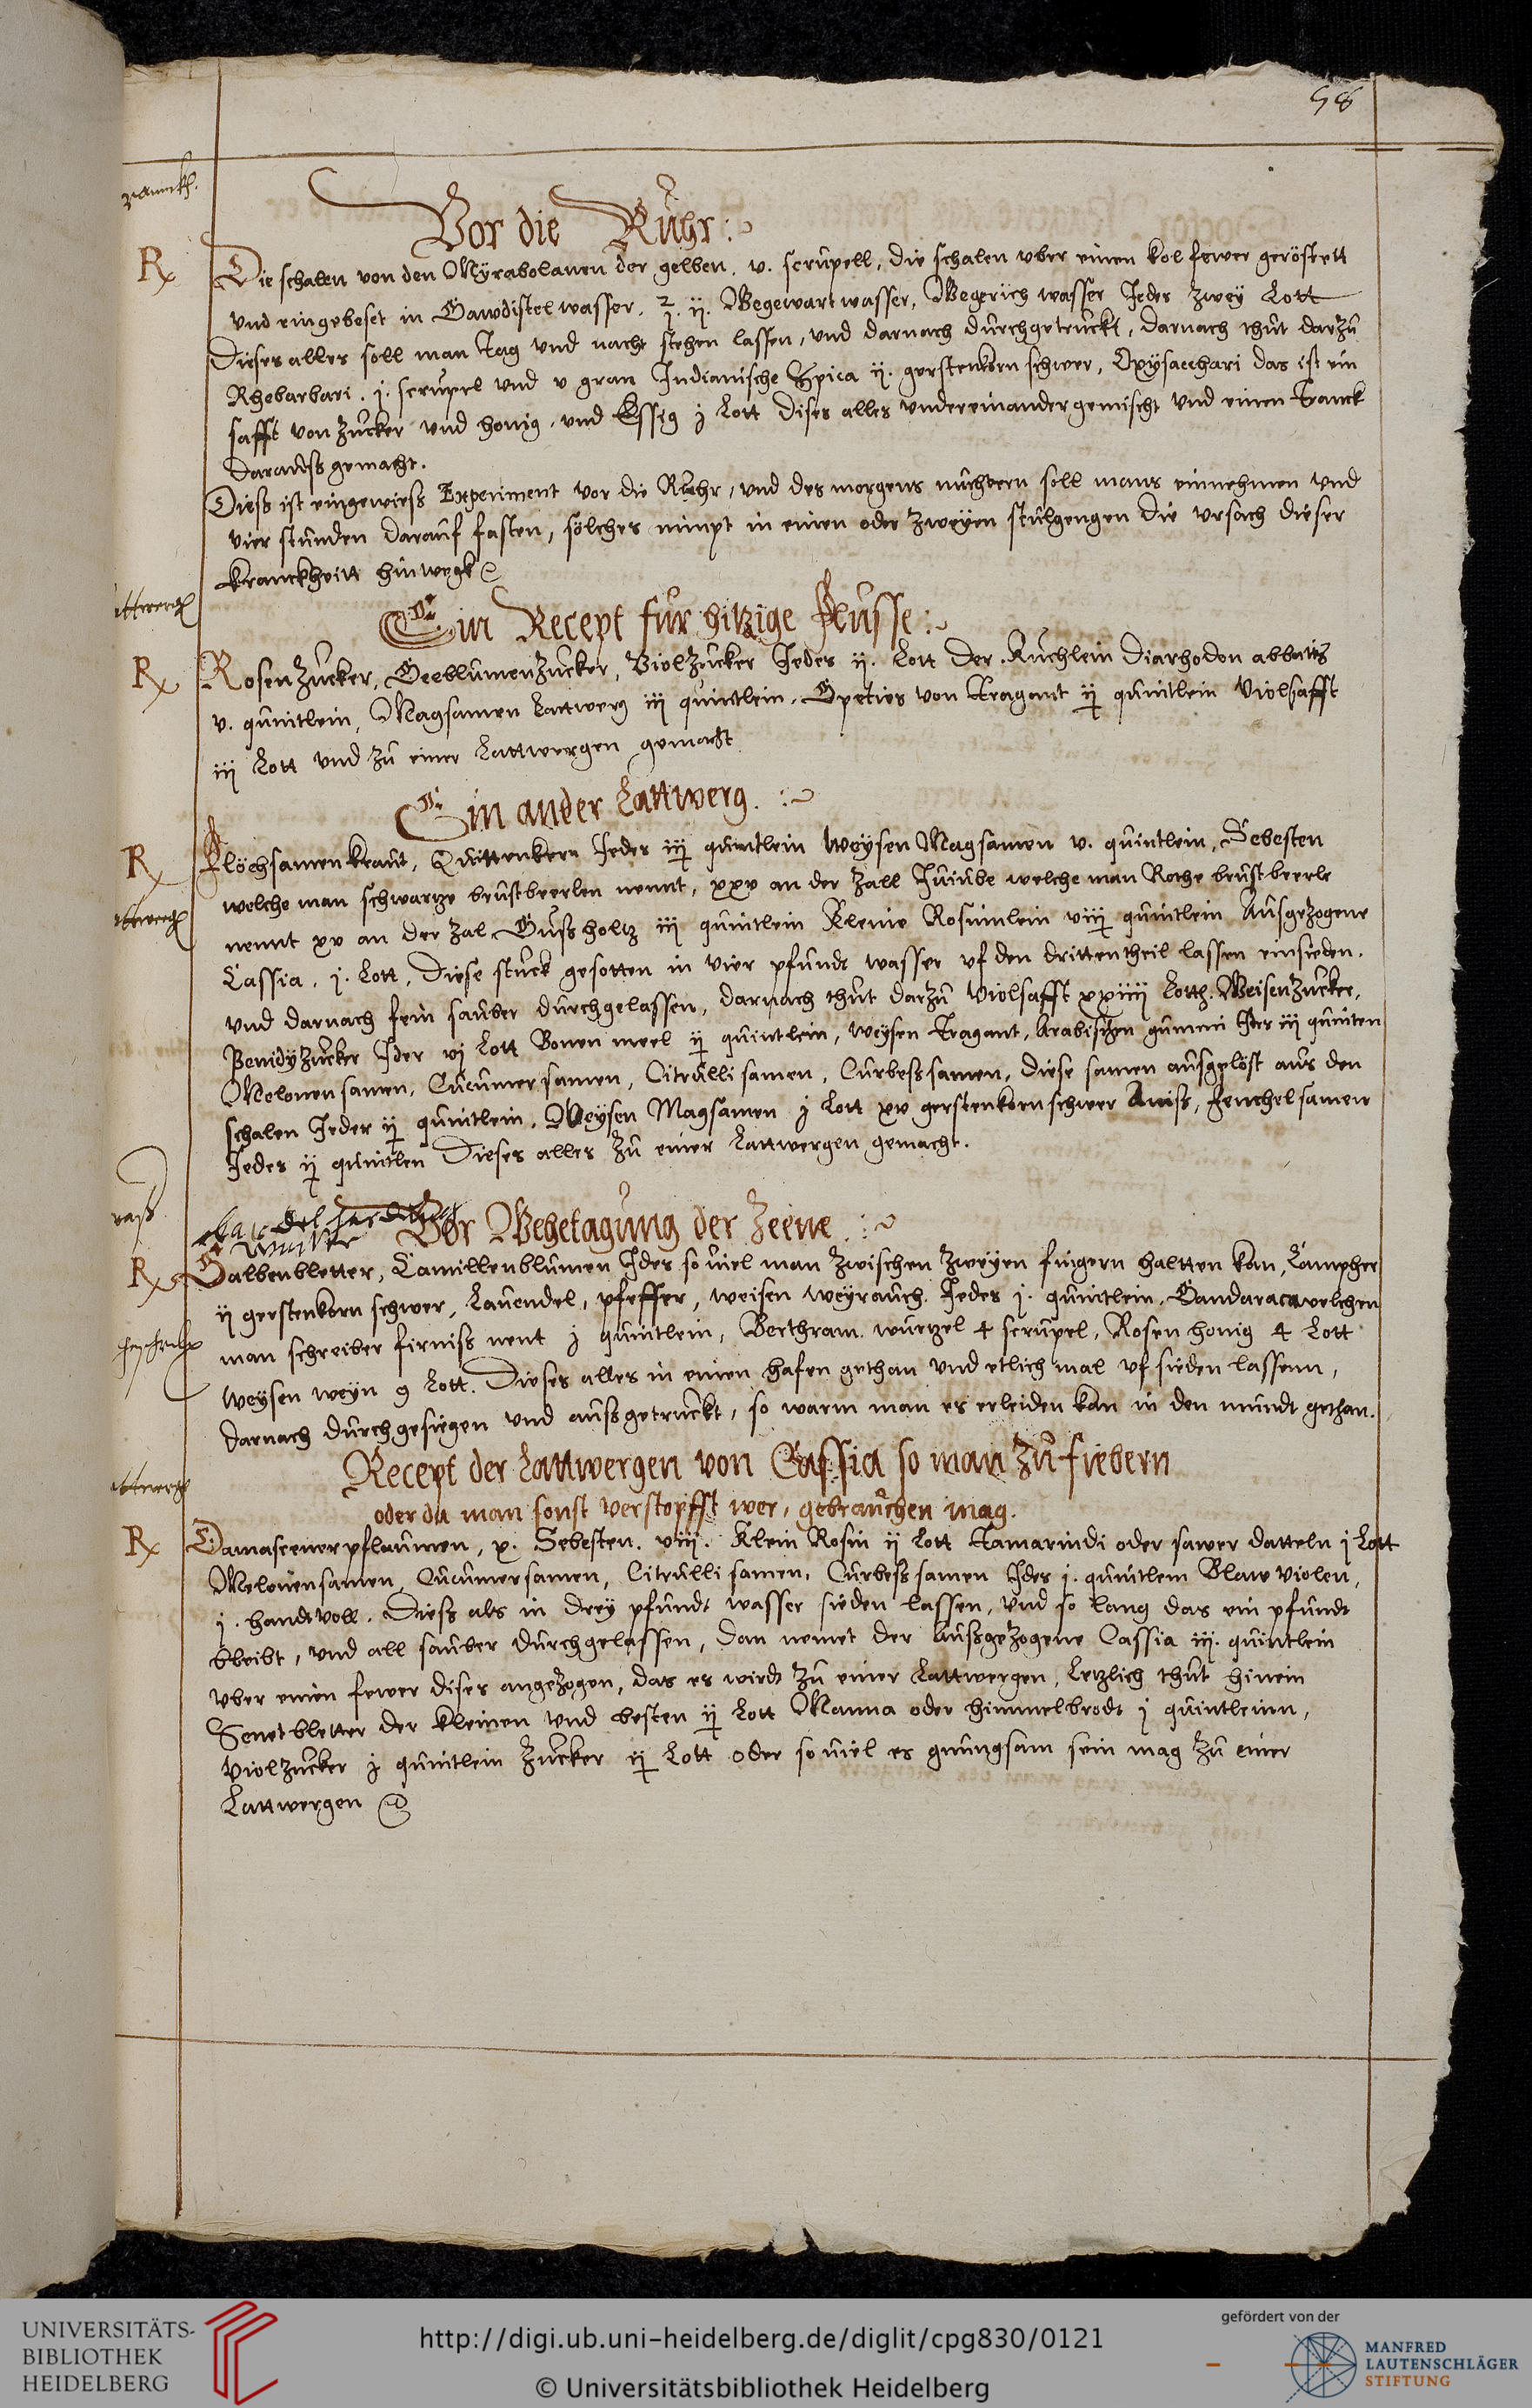 58
Vor die Ruhr :
R Die schalen von den Myrabolanen der gelben. v. scrupell, die schalen vber einen kol fewer geröstett
vnd eingebeset in Sawdistel wasser. ij. Wegewart wasser, Wegerich wasser Jedes zwey Lott
Dieses alles soll man Tag vnd nacht stehen lassen, vnd darnach durchgetruckt, darnach thut darzu
Rhebarbari. j. scrupel vnd v gran Indianische Spica ij. gerstenkorn schwer, Oxysacchari das ist ein
safft von zucker vnd honig, vnd Essig j Lott dises alles vndereinander gemischt vnd einen Tranck
darauss gemacht.
Diess ist ein gewiess Experiment vor die Ruhr, vnd des morgens nuchtern soll mans einnehmen vnd
vier stunden darauf fasten, sölches nimpt in einen oder zweyen stulgengen die vrsach dieser
kranckheitt hinwegk
Ein Recept fur hitzige Flusse :
R Rosenzucker, Seeblumenzucker, Violzucker Jedes ij. Lott der Kuchlein Diarhodon abbatis
v. quintlein, Magsamen Lattwerg iij quintlein, Speties von Tragant ij quintlein Violsafft
iij Lott vnd zu einer Lattwergen gemacht
Ein ander Lattwerg. :
R Flöchsamenkraut, Quittenkern Jedes iij quintlein weysen Magsamen v. quintlein, Sebesten
welche man schwartze brustbeerlen nennt, xxv an der zall Juiube welche man Rothe brustbeerle
nennt xv an der zal Sussholtz iij quintlein Kleine Rosinnlein viij quintlein Aussgezogene
Cassia. j. Lott, Diese stuck gesotten in vier pfundt wasser vf den drittentheil lassen einsieden.
vnd darnach fein sauber durchgelassen, darnach thut darzu Violsafft xxiiij Loth. Weisenzucker,
Penidyzucker Jder vj Lott Bonen meel ij quintlein, weysen Tragant, Arabischen gummi Jder iij quinten
Melonen samen, Cucumer samen, Citrulli samen, Curbess samen, diese samen aussgelöst aus den
schalen Jeder ij quintlein, Weysen Magsamen j Lott xv gerstenkorn schwer Aniss, fenchel samen
Jedes ij quintlen Dieses alles zu einer Lattwergen gemacht.
Vor Wehetagung der Zeene :
R Salbenbletter, Camillenblumen Jdes so viel man zwischen zweyen fingern haltten kan, Campher
ij gerstenkorn schwer, Lauendel, pfeffer, weisen weyrauch Jedes j. quintlein, Sandaraca welchen
man schreiber firniss nent j quintlein, Berthram wurtzel 4 scrupel, Rosen honig 4 Lott
weysen weyn 9 Lott. Dieses alles in einen hafen gethan vnd etlich mal vf sieden lassenn,
darnach durchgesiegen vnd aussgetruckt, so warm man es erleiden kan in den mundt gethan.
Recept der Lattwergen von Cassia so man zu fiebern
oder da man sonst verstopfft wer, gebrauchen mag.
R Damascener pflaumen, x. Sebesten. viij. Klein Rosin ij Lott Tamarindi oder sawer datteln j Lott
Melonensamen, Cucumersamen, Citrulli samen, Curbess samen Jdes j. quintlein Blaw violen,
j. handtvoll. Diess als in drey pfundt wasser sieden lassen, vnd so lang das ein pfundt
bleibt, vnd all sauber durchgelassen, dan nemet der Aussgezogene Cassia iij. quintlein
vber einen fewer dises angezogen, das es wirdt zu einer Lattwergen, Letzlich thut hinein
Senetbletter der kleinen vnd besten ij Lott Manna oder himmelbrodt j quintleinn,
Violzucker j quintlein zucker ij Lott oder so viel es gnungsam sein mag zu einer
Lattwergen
UNIVERSITÄTS-
BIBLIOTHEK
HEIDELBERG
http://digi.ub.uni-heidelberg.de/diglit/cpg830/0121
© Universitätsbibliothek Heidelberg
gefördert von der
MANFRED
LAUTENSCHLÄGER
STIFTUNG